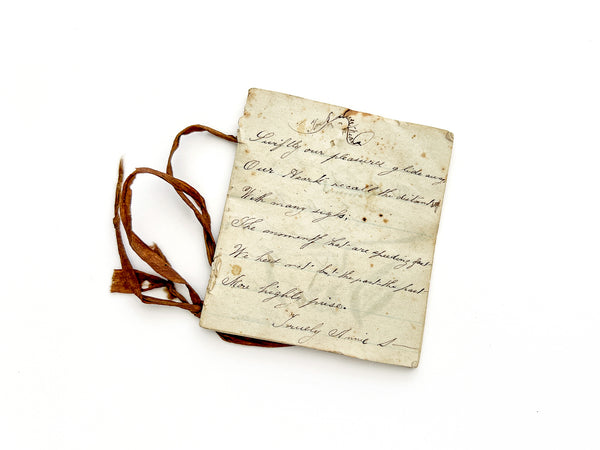 Swiftly our pleasures glide away
Our Hearts recall the distant day
With many sighs,
The moments that are speeding fast
We heed not but the past the past
More highly prise.
Truely Annie S